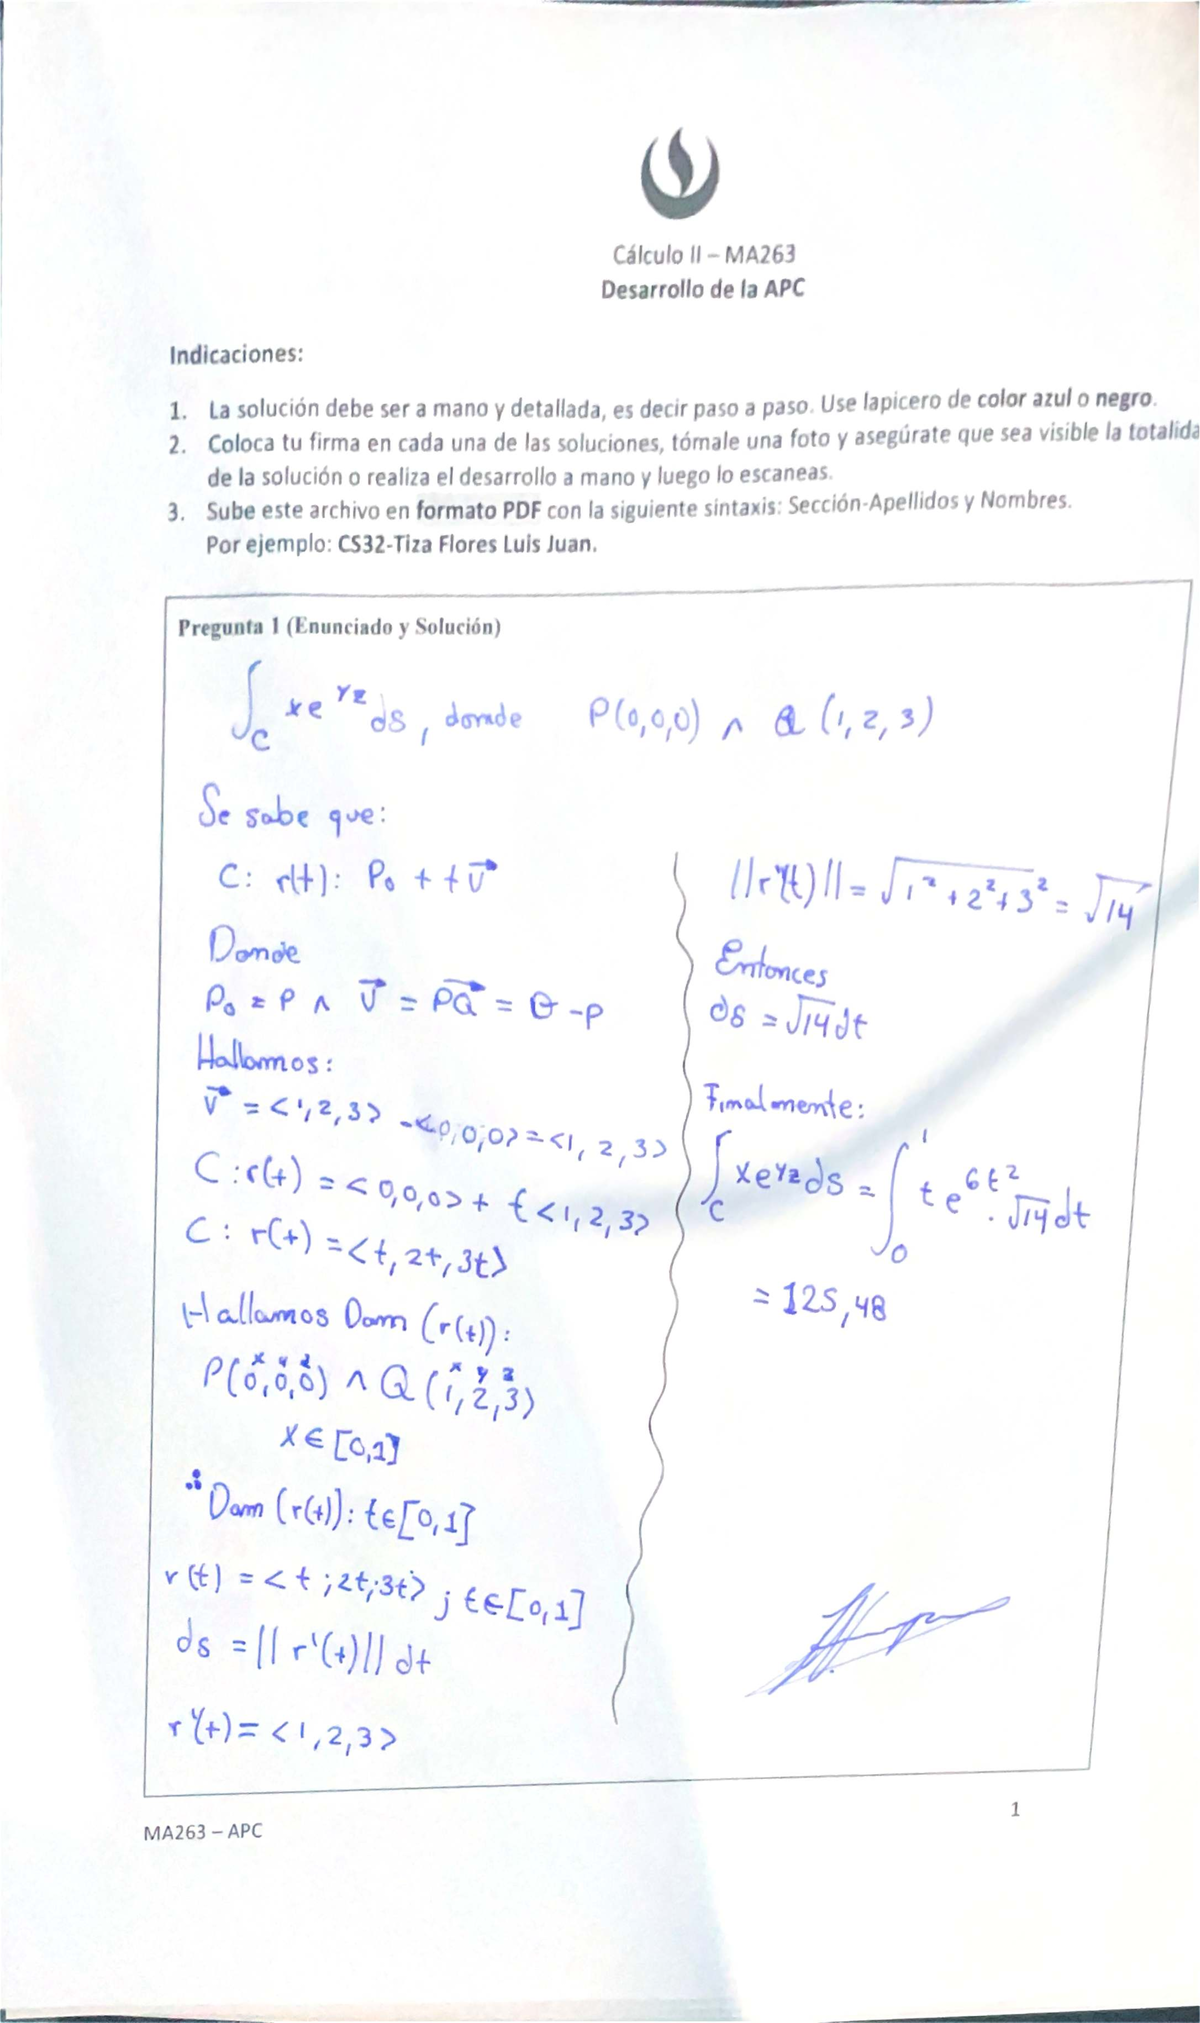 Cálculo II – MA263
Desarrollo de la APC
Indicaciones:
1. La solución debe ser a mano y detallada, es decir paso a paso. Use lapicero de color azul o negro.
2. Coloca tu firma en cada una de las soluciones, tómale una foto y asegúrate que sea visible la totalida
de la solución o realiza el desarrollo a mano y luego lo escaneas.
3. Sube este archivo en formato PDF con la siguiente sintaxis: Sección-Apellidos y Nombres.
Por ejemplo: CS32-Tiza Flores Luis Juan.
Pregunta 1 (Enunciado y Solución)
∫_C xe^{yz} ds, donde P(0,0,0) ∧ Q (1, 2, 3)
Se sabe que:
C: r(t): P₀ + t v⃗
Donde
P₀ = P ∧ v⃗ = PQ⃗ = Q - P
Hallamos:
v⃗ = <1,2,3> - <0,0,0> = <1, 2, 3>
C: r(t) = <0,0,0> + t<1, 2, 3>
C: r(t) = <t, 2t, 3t>
Hallamos Dom (r(t)):
x y z x y z
P(0,0,0) ∧ Q (1, 2, 3)
x ∈ [0,1]
∴ Dom (r(t)): t∈[0,1]
r(t) = <t ; 2t; 3t> ; t∈[0,1]
ds = ||r'(t)|| dt
r'(t) = <1, 2, 3>
||r'(t)|| = √(1² + 2² + 3²) = √14
Entonces
ds = √14 dt
Finalmente:
∫_C xe^{yz} ds = ∫₀¹ t e^{6t²} . √14 dt
= 125,48
MA263 – APC
1